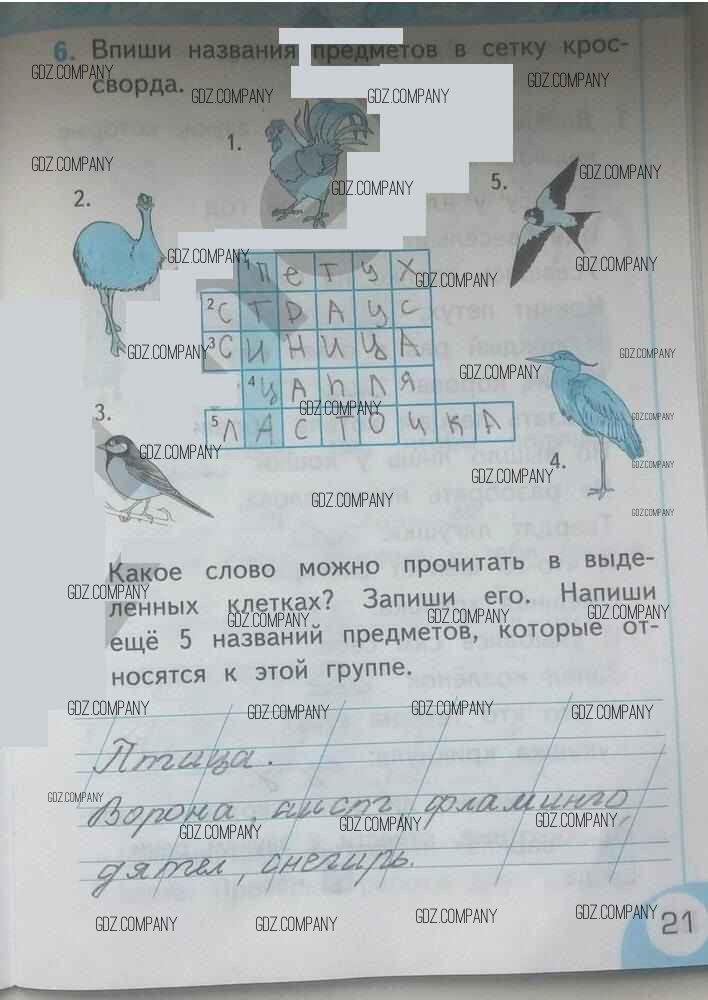 6. Впиши названия предметов в сетку крос-
GDZ.COMPANY
сворда.
GDZ.COMPANY
GDZ.COMPANY
GDZ.COMPANY
1.
GDZ.COMPANY
5.
GDZ.COMPANY
2.
GDZ.COMPANY
GDZ.COMPANY
GDZ.COMPANY
1 Петух
GDZ.COMPANY
2 СТРАУС
3 СИНИЦА
GDZ.COMPANY
GDZ.COMPANY
GDZ.COMPANY
4 ЦАПЛЯ
GDZ.COMPANY
3.
5 ЛАСТОЧКА
GDZ.COMPANY
GDZ.COMPANY
4.
GDZ.COMPANY
GDZ.COMPANY
GDZ.COMPANY
GDZ.COMPANY
Какое слово можно прочитать в выде-
GDZ.COMPANY
ленных клетках? Запиши его. Напиши
GDZ.COMPANY
GDZ.COMPANY
GDZ.COMPANY
ещё 5 названий предметов, которые от-
носятся к этой группе.
GDZ.COMPANY
GDZ.COMPANY
GDZ.COMPANY
GDZ.COMPANY
Птица.
GDZ.COMPANY
Ворона, аист, фламинго,
GDZ.COMPANY
GDZ.COMPANY
GDZ.COMPANY
дятел, снегирь.
GDZ.COMPANY
GDZ.COMPANY
GDZ.COMPANY
GDZ.COMPANY
21